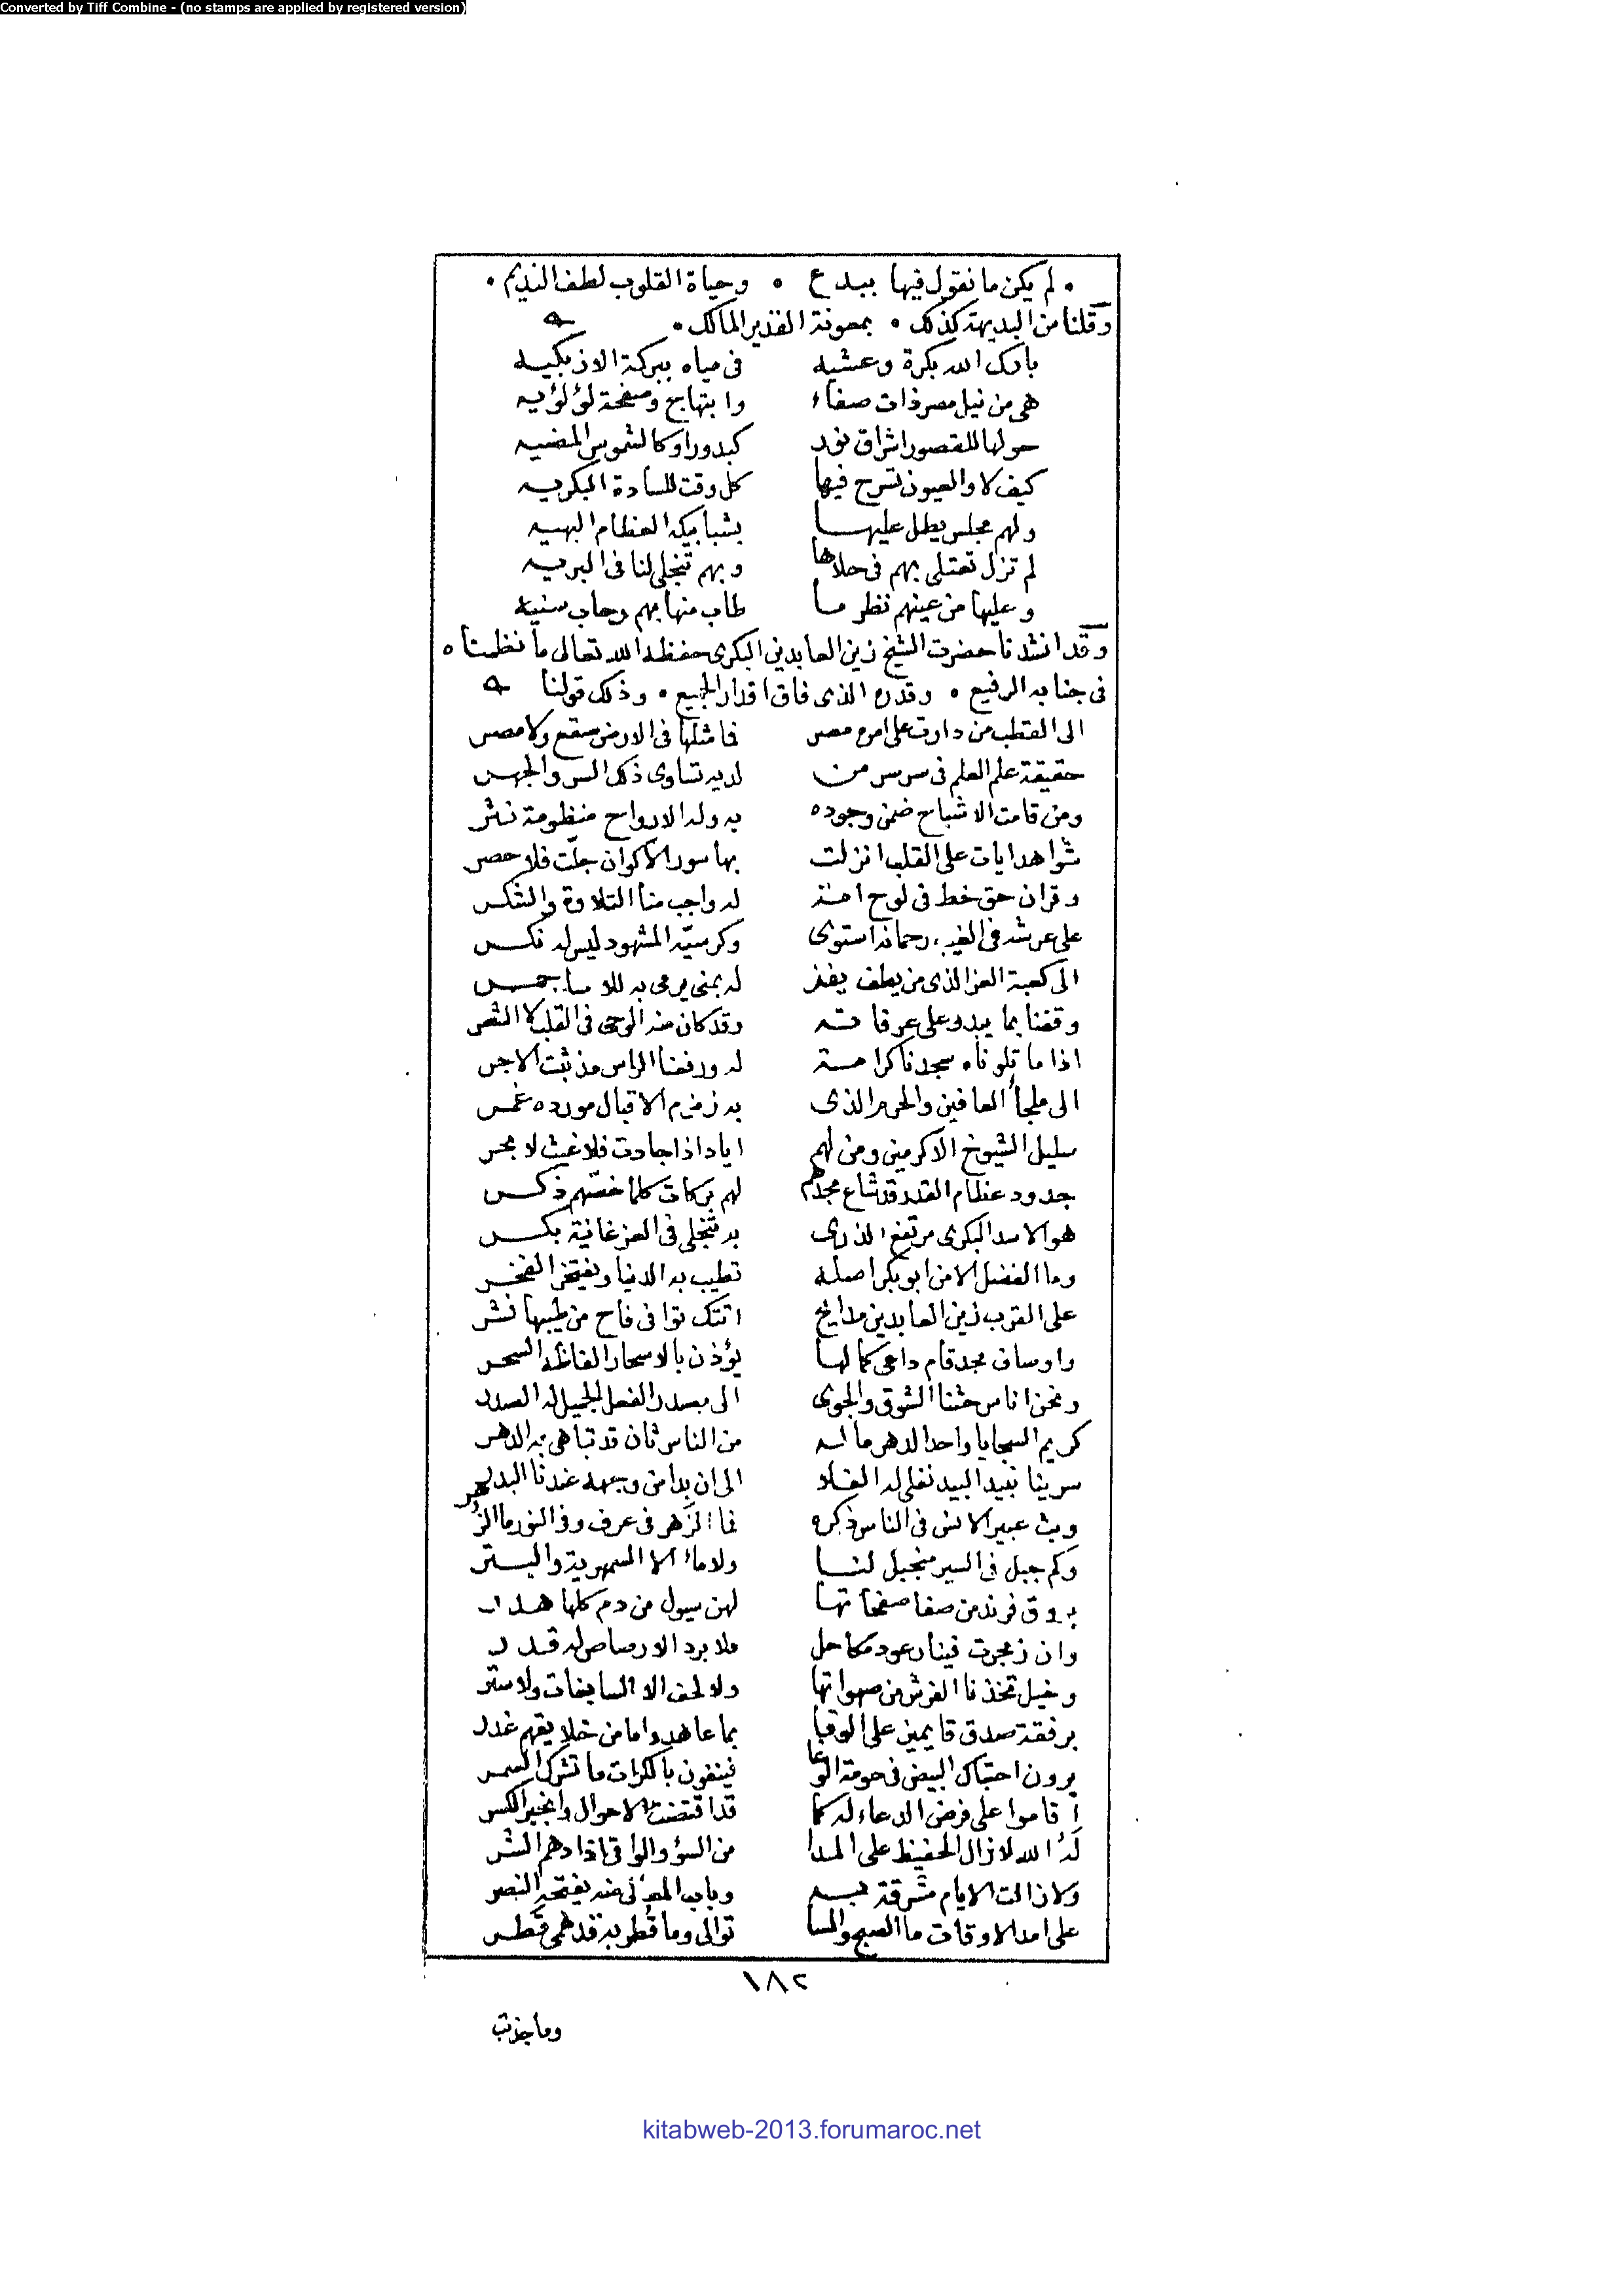 Converted by Tiff Combine - (no stamps are applied by registered version)
• لم يكن ما نقول فيها ببدع • وحياة القلوب لطف النديم •
وقلنا من البديهة كذلك • بمعونة القدير المالك •
بارك الله بكرة وعشيه في مياه ببركة الازبكيه
هي من نيل مصر ذات صفاء وابتهاج وصفحة لؤلؤيه
حولها للقصور اشراق نور كبدور او كالشموس المضيه
كيف لا والعيون تسرح فيها كل وقت للسادة البكريه
ولهم مجلس يطل عليها بشبابيكه العظام البهيه
لم تزل تعتلي بهم في حلاها وبهم تنجلي لنا في البريه
وعليها من عينهم نظر ما طاب منها بهم رحاب سنيه
وقد انشدنا حضرت الشيخ زين العابدين البكري حفظه الله تعالى ما نظمناه
في جنابه الرفيع • وقدره الذي فاق اقدار الجميع • وذلك قولنا
الى القطب من دارت على امره مصر فما مثلها في الارض سقع ولا مصر
حقيقة علم العلم في سر سر من لديه تساوى ذلك السر والجهر
ومن قامت الاشباح ضمن وجوده به وله الارواح منظومة نثر
شواهد ايات على القلب انزلت بها سور الاكوان جلّت فلا حصر
وقران حق خط في لوح امنه له واجب منا التلاوة والشكر
على عرشه في الغيب رحمانه استوى وكرسيّه المشهود ليس له نكر
الى كعبة العز الذي من يطف يفز له بمنى يرمى به للاسا جمر
وقفنا بما يبدو على عرفاته وقد كان منه الوحي في القلب لا الشعر
اذا ما تلوناه سجدنا كرامة له ورفعنا الراس مذ ثبت الاجر
الى ملجأ العافين والحرم الذي به زمزم الاقبال مورده غمر
سليل الشيوخ الاكرمين ومن لهم اياد اذا جادت فلا غيث لا بحر
جدود عظام القدر قد شاع مجدهم لهم بركات كلما خصّهم ذكر
هو الاسد البكري مرتفع الذرى به تنجلي في العز غانية بكر
وما الفضل الا من ابو بكر اصله تطيب به الدنيا ويفتخر الفخر
على القرب زين العابدين مدايح اتتك توافي فاح من طيبها نشر
واوصاف مجد قام داعي كمالها يؤذن بالاسحار الفاظه السحر
ونحن اناس حثنا الشوق والجوى الى مصدر الفعل الجميل له الصدر
كريم السجايا واحد الدهر ما له من الناس ثان قد تباهى به الدهر
سرينا نبيد البيد نفلي له الفلا الى ان بدا من وجهه عندنا البدر
وبث عبير الانس في الناس ذكره فما الزَهر في عرف وفي النور ما الزُهر
وكم جبل في السير منجبل لنا ولا ماء الا السمهرية والبتر
بروق فرند من صفا صفحاتها لهن سيول من دم كلها هدر
وان زمجرت فينا رعود مكاحل فلا برد الا رصاص له قدر
وخيل تخذنا الفرش من صهواتها ولا لحف الا السابغات ولا ستر
برفقة صدق قايمين على الوفا بما عاهدوا ما من خلايقهم غدر
يرون احتباك البيض في حومة الوغا فينفون بالكرات ما تشرك السمر
اقاموا على فرض الدعاء له كما قد اقتضت الاحوال وانجبر الكسر
لهُ الله لا زال الحفيظ على المدا من السوء والواقي اذا دهم الشر
ولا زالت الايام مشرقة به وباب المعالي عنه يفتحه النصر
على امد الاوقات ما الصبح والمسا توالى وما قُطر به قد همى قَطر
١٨٢
وما جذبت
kitabweb-2013.forumaroc.net